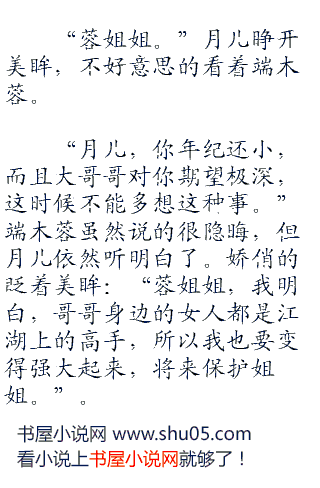 “蓉姐姐。”月儿睁开
美眸，不好意思的看着端木
蓉。
“月儿，你年纪还小，
而且大哥哥对你期望极深，
这时候不能多想这种事。”
端木蓉虽然说的很隐晦，但
月儿依然听明白了。娇俏的
眨着美眸：“蓉姐姐，我明
白，哥哥身边的女人都是江
湖上的高手，所以我也要变
得强大起来，将来保护姐
姐。”。
书屋小说网 www.shu05.com
看小说上书屋小说网就够了！